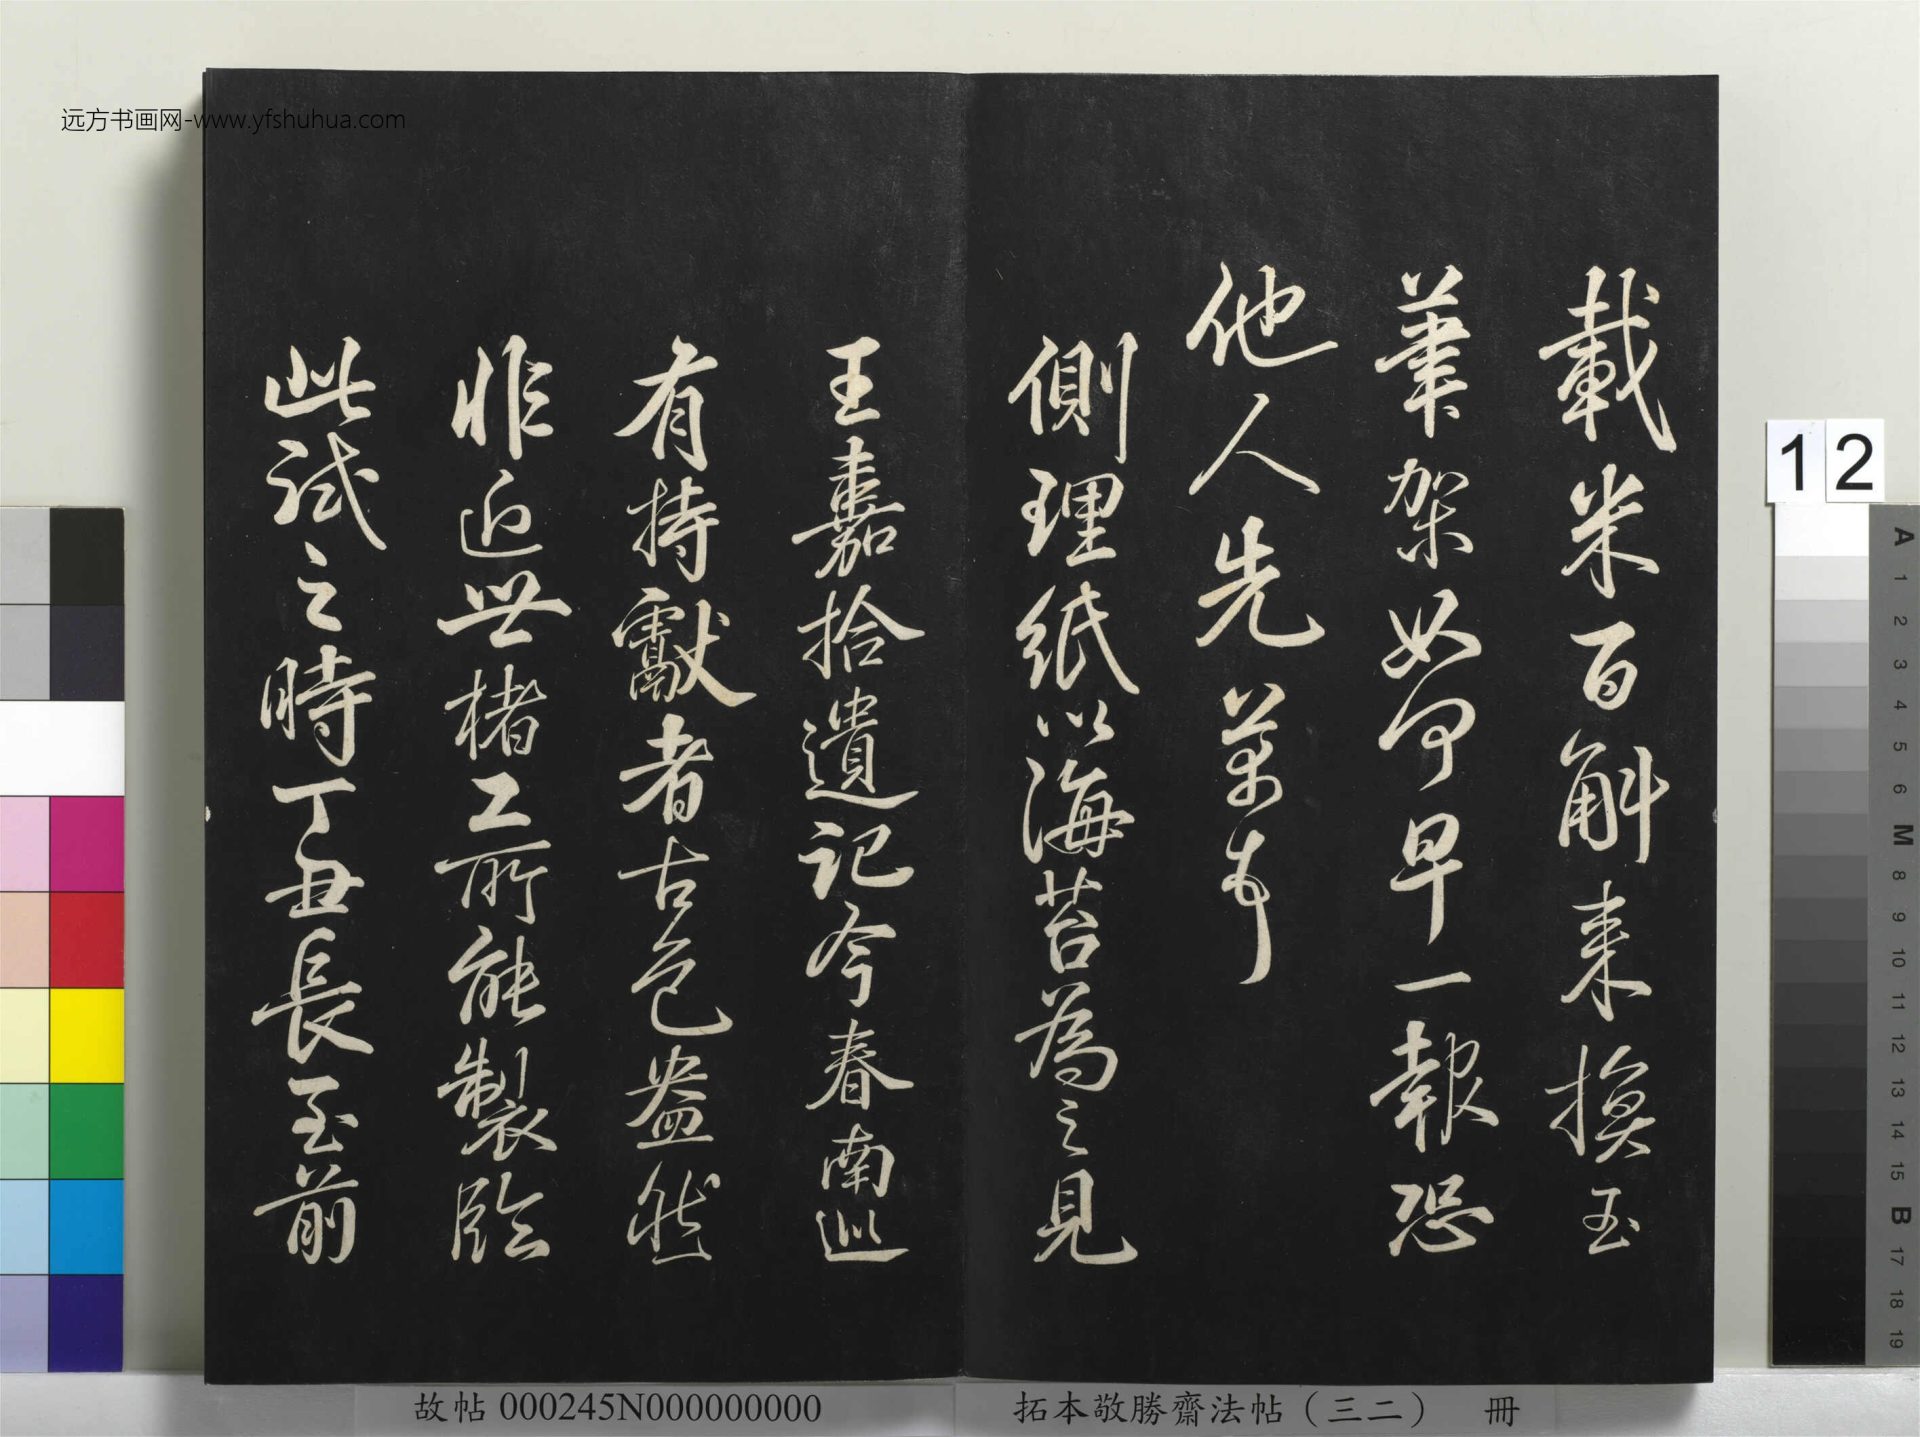 远方书画网-www.yfshuhua.com
載米百斛来換玉
筆架如何早一報恐
他人先萬幸
側理紙以海苔為之見
王嘉拾遺記今春南巡
有持獻者古色盎然
非近世楮工所能製臨
此試之時丁丑長至前
12
A 1 2 3 4 5 6 M 8 9 10 11 12 13 14 15 B 17 18 19
故帖 000245N000000000
拓本敬勝齋法帖（三二） 冊